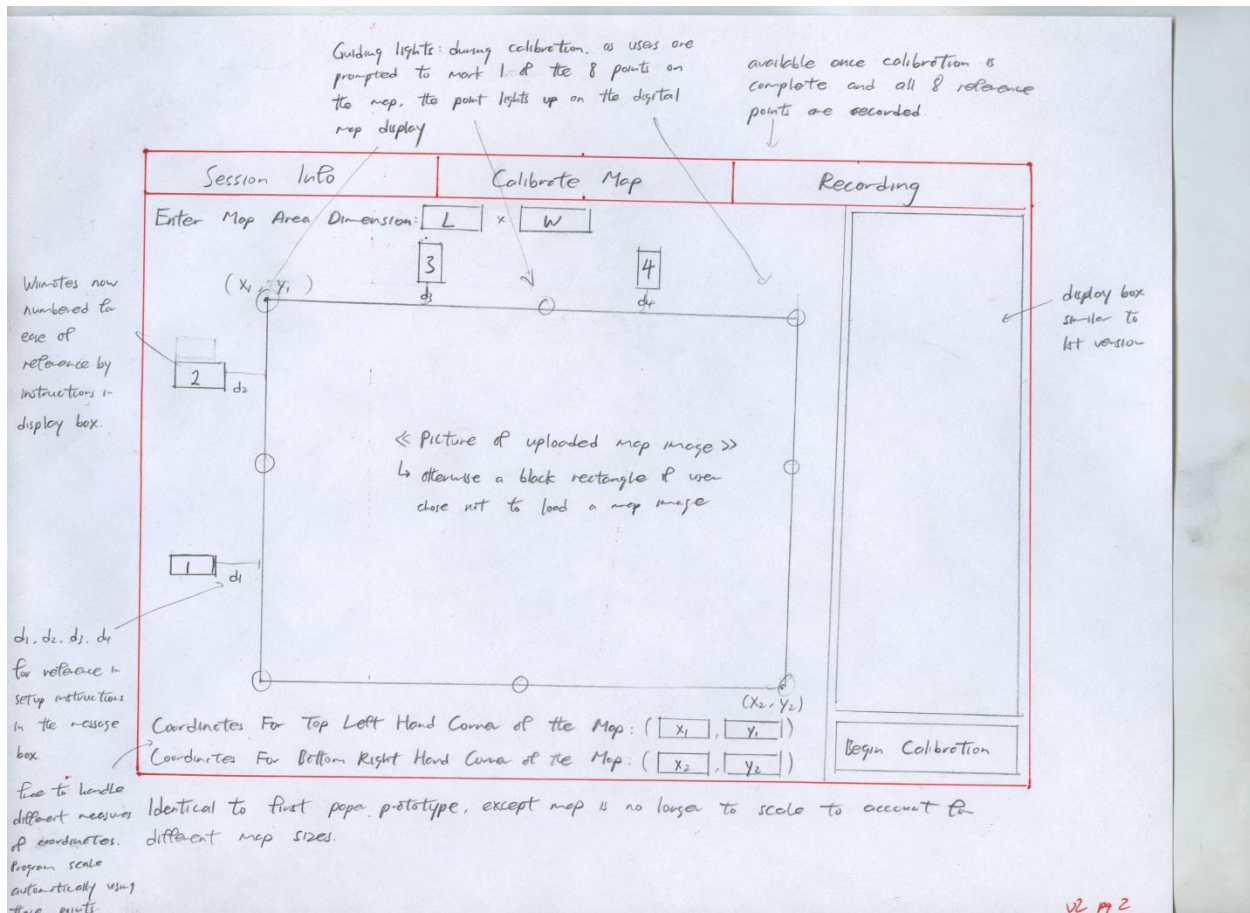 Guiding lights: during calibration, as users are
prompted to mark 1 of the 8 points on
the map, the point lights up on the digital
map display
available once calibration is
complete and all 8 reference
points are recorded.
Session Info
Calibrate Map
Recording
Enter Map Area Dimension: L x W
3
4
(x1, y1)
d3
d4
Wiimotes now
numbered for
ease of
reference by
instructions in
display box.
2
d2
display box
similar to
1st version
<< Picture of uploaded map image >>
↳ otherwise a black rectangle if user
chose not to load a map image
1
d1
d1, d2, d3, d4
for reference in
setup instructions
in the message
box
(x2, y2)
Coordinates For Top Left Hand Corner of the Map: (x1, y1)
Coordinates For Bottom Right Hand Corner of the Map: (x2, y2)
Begin Calibration
free to handle
different measures
of coordinates.
Program scale
automatically using
these points.
Identical to first paper prototype, except map is no longer to scale to account for
different map sizes.
v2 pg 2